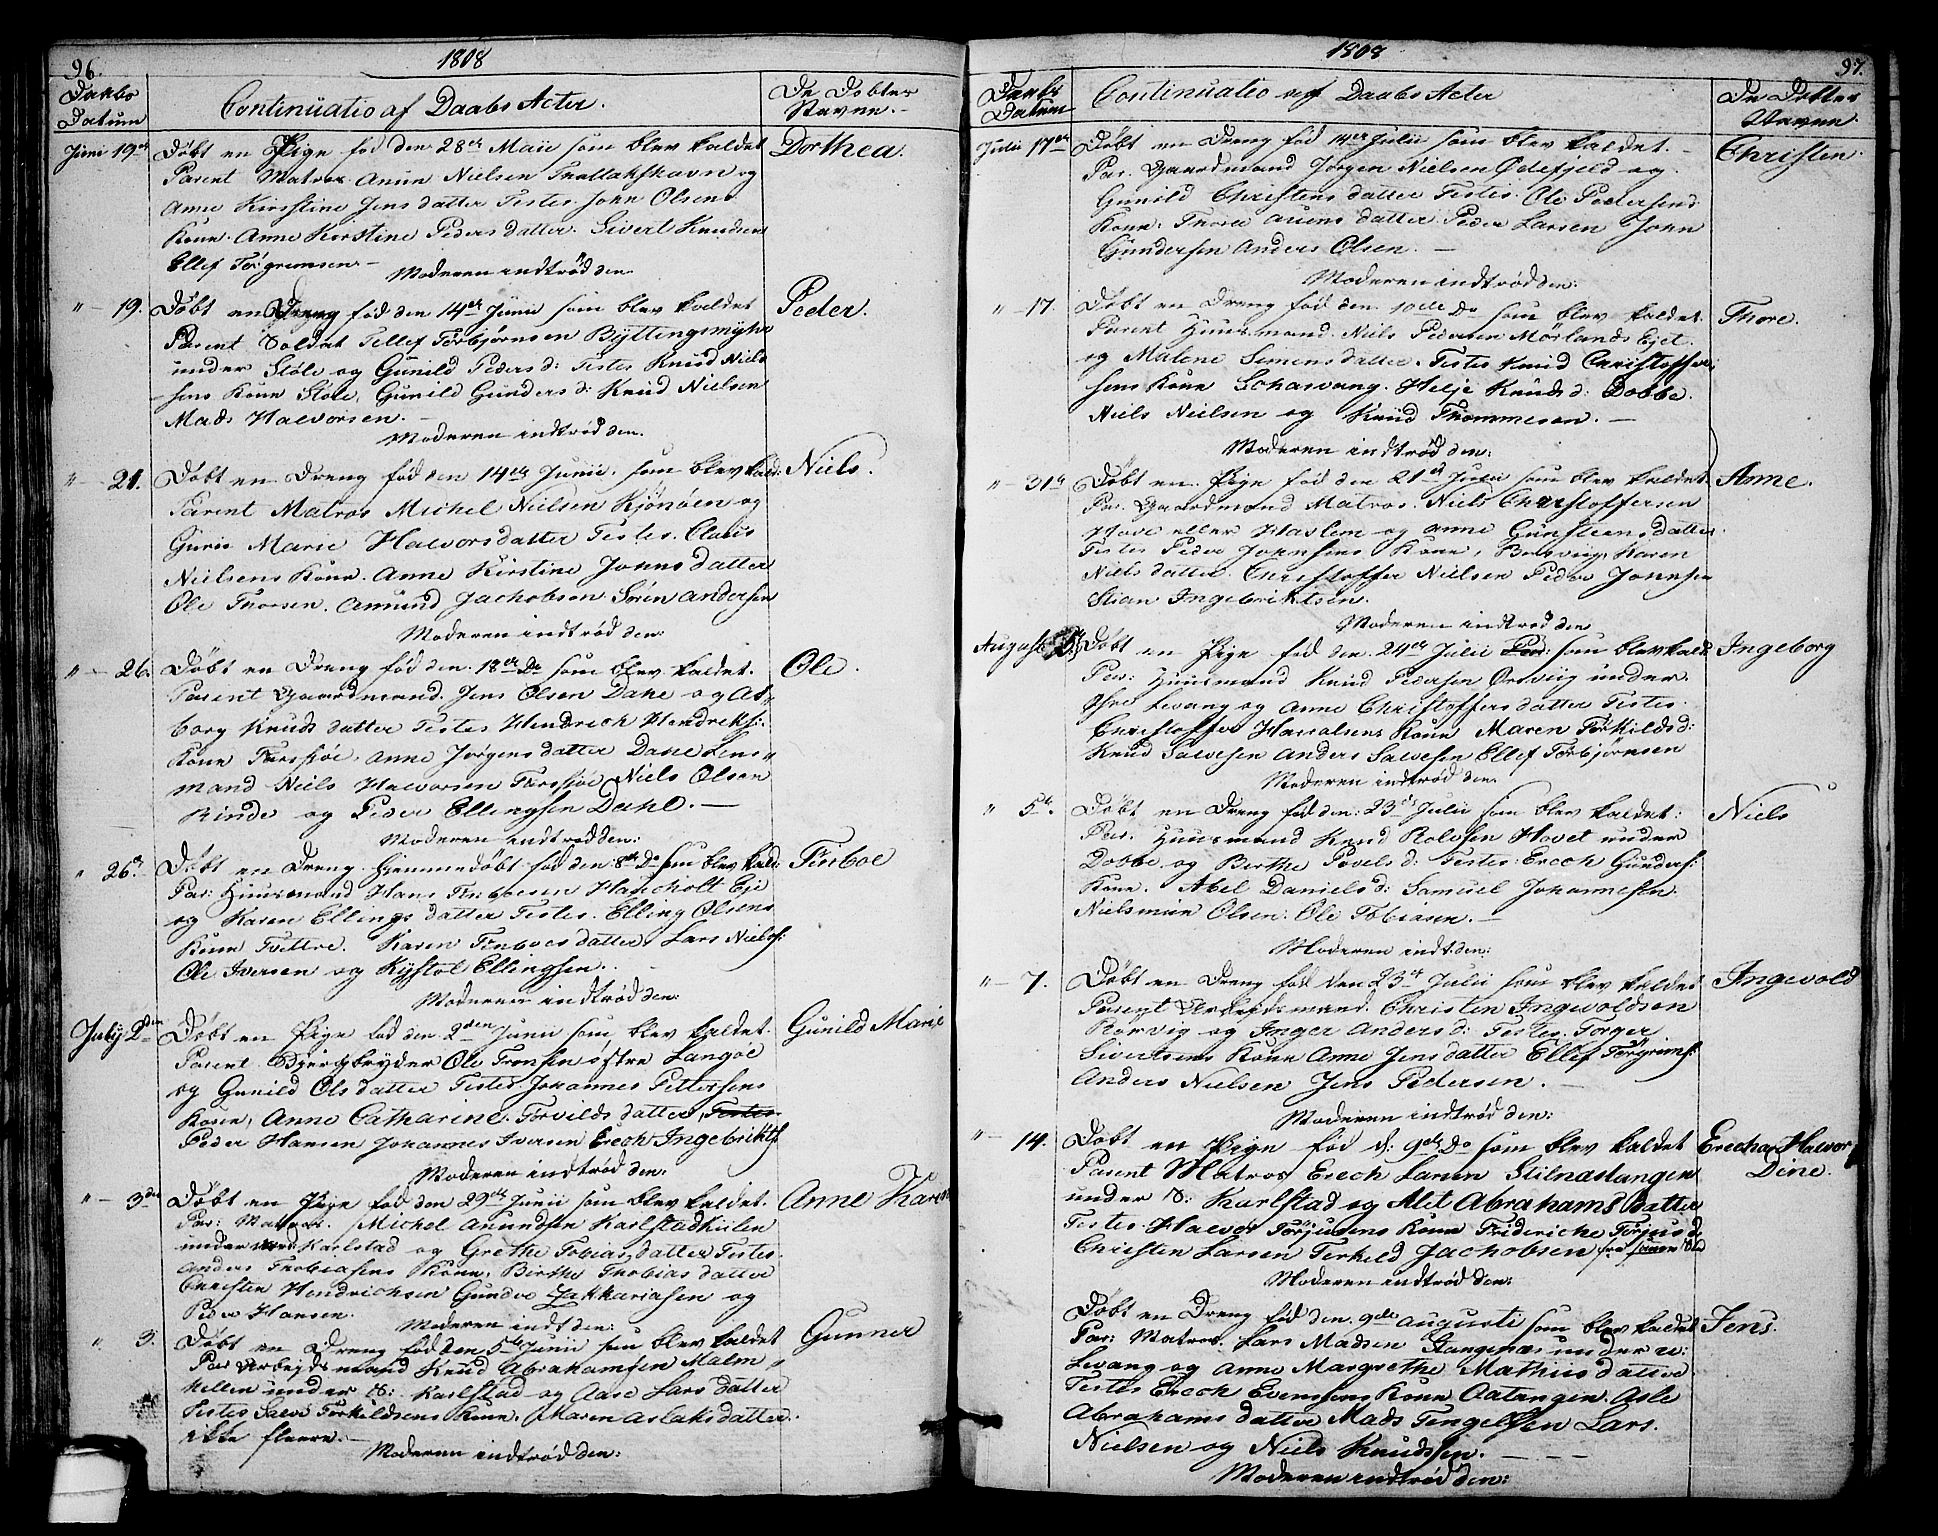 96.
1808
Daabs Datum
Continuatio af Daabs Acter.
De Døbtes Navne.
Juni 19de
Døbt en Pige fød den 28de Maii som blev kaldet
Dorthea.
Parent Matros Anun Nielsen og
Anne Kirstine Jensdatter Testes John Olsens
Kone. Anne Kirstine Pedersdatter. Sivert Knudsen
Ellef Torgrimsen
Moderen indtrød den
" 19.
Døbt en Dreng fød den 14de Junii som blev kaldet
Peder.
Parent Soldat Tellef Torbjørnsen
under Støle og Gunild Peders d: Testes Knud Niel-
sens Kone Støle, Gunild Gunders d: Knud Nielsen
Mads Halvorsen.
Moderen indtrød den.
" 21.
Døbt en Dreng fød den 14de Junii. som blev kald:
Niels.
Parent Matros Michel Nielsen Kjönöen og
Guri Marie Halvorsdatter Testes. Claus
Nielsens Kone. Anne Kirstine Johnsdatter
Ole Thorsen. Amund Jachobsen Sören Andersen
Moderen indtrød den:
" 26.
Døbt en Dreng fød den 18de Do som blev kaldet.
Ole.
Parent Gaardmand Jens Olsen Dahe og As-
borg Knuds datter Testes Hendrich Hendriks:
Kone Farssjøe, Anne Jørgensdatter Dahe Lens-
mand Niels Halvorsen Farssjøe Niels Olsen
Rinde og Peder Ellingsen Dahl.
Moderen indtrød den:
" 26de
Døbt en Dreng Hjemmedøbt fød den 8de Do som blev kald:
Finboe
Par: Huusmand Hans Finboesen Haucholt Eje
og Karen Ellings datter Testes. Elling Olsens
Kone Tvettre. Karen Finboesdatter, Lars Niels:
Ole Iversen og Kystol Ellingsen.
Moderen indtrød den:
July 2den
Døbt en Pige fød den 2den Junii som blev kaldet.
Gunild Marie
Parent Bjergbryder Ole Tronsen østre Langöe
og Gunild Olsdatter Testes Johannes Pettersens
Kone, Anne Catharine Torvilds datter, Testes
Peder Hansen Johannes Iversen Erech Ingebrikts.
Moderen indtrød den:
" 3de
Døbt en Pige fød den 29de Junii som blev kaldet.
Anne Karen
Par: Matros. Michel Anundsen Karlstadkielen
under Karlstad og Grethe Tobias datter Testes
Anders Thobiasens Kone, Birthe Thobias datter
Christen Hendrichsen Gunder Zakkariasen og
Peder Hansen.
Moderen indt den:
" 3.
Døbt en Dreng fød den 5te Junii som blev kaldet
Gunner
Par Arbejdsmand Knud Abrahamsen Malm
hellen under S: Karlstad og Aase Lars datter
Testes Salve Torkildsens Kone, Maren Aslaksdatter.
ikke fleere.
Moderen indtrød den:
1808
97.
Daabs Datum
Continuatio af Daabs Acter
De Døbtes Navne.
Julii 17de
Døbt en Dreng fød 14de Julii som blev kaldet.
Christen.
Par. Gaardmand Jørgen Nielsen Ødefjeld og
Gunild Christens datter Testes. Ole Pedersens
Kone. Thore Anens datter. Peder Larsen John
Gundersen Anders Olsen.
Moderen indtrød den:
" 17.
Døbt en Dreng fød den 10de Do som blev kaldet.
Thore.
Parent Huusmand. Niels Pedersen Mørlands Ejet.
og Malene Simensdatter. Testes Knud Christoffer-
sens Kone Schaswang. Helje Knuds d: Dobbe.
Niels Nielsen og Knud Thommesen.
Moderen indtrød den:
" 31te
Døbt en Pige fød den 21de Julii som blev kaldet
Anne.
Par. Gaardmand Matros. Niels Christoffersen
Hove eller Haslem og Anne Gunsteensdatter.
Testes Peder Johnsens Kone, Karen
Nielsdatter. Christoffer Nielsen Peder Johnsen
Stian Ingebriktsen.
Moderen indtrød den
August
Døbt en Pige fød den 24de Julii Par: som blev kald
Ingeborg
Par: Huusmand Knud Pedersen Ørevig under
Øvre Levang og Anne Christoffersdatter Testes.
Christoffer Haraldsens Kone Maren Torkilds d:
Knud Salvesen Anders Salvesen Ellef Torbjørnsen
Moderen indtrød den.
" 5te.
Døbt en Dreng fød den 23de Julii som blev kaldet:
Niels
Par. Huusmand Knud Rolvsen Hovet under
Dobbe og Birthe Povels d: Testes. Erech Gunders:
Kone. Abel Daniels d: Samuel Johannesen.
Nielsmun Olsen. Ole Tobiasen.
Moderen indt den:
" 7.
Døbt en Dreng fød den 23de Julii som blev kaldet
Ingevold
Parent Arbejdsmand. Christen Ingevoldsen
Rørvig og Inger Anders d: Testes. Torger
Sivertsens Kone Anne Jensdatter Ellef Torgrims:
Anders Nielsen Jens Pedersen.
Moderen indtrød den:
" 14.
Døbt en Pige fød d: 9de Do som blev kaldet
Erecha Halvor Dine.
Parent Matros Erech Larsen Stilnastangen
under S: Karlstad og Alet Abrahams Datter
Testes. Halvor Torjusens Kone Frideriche Torjus d
Christen Larsen Terkeld Jachobsen fra samme Sted
Moderen indtrød den:
Døbt en Dreng fød den. 9de Augusti som blev kaldet
Jens.
Par: Matros. Lars Madsen Stangenæs under n:
Levang og Anne Margrethe Mathiisdatter
Testes Erech Evensens Kone Aatangen. Asle
Abrahams datter Mads Tengelsen Lars.
Nielsen og Niels Knudsen.
Moderen indtrød den: